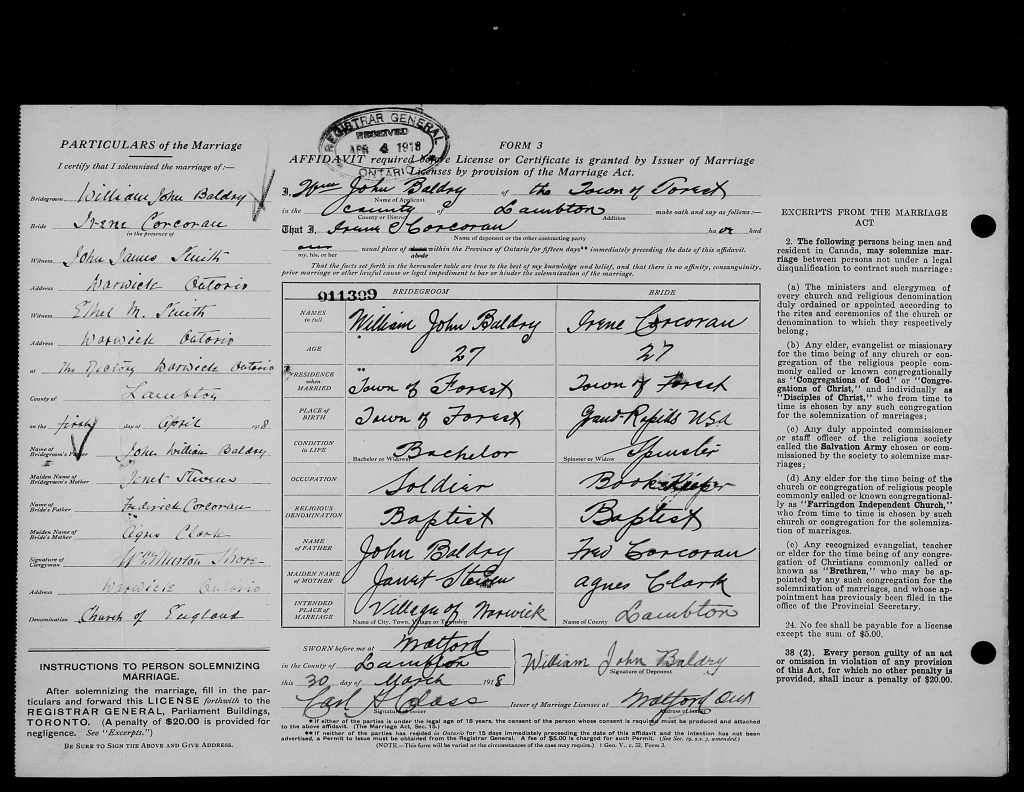 PARTICULARS of the Marriage
I certify that I solemnized the marriage of:—
Bridegroom William John Baldry
Bride Irene Corcoran
in the presence of
Witness John James
Address Warwick Ontario
Witness Ethel M.
Address Warwick Ontario
at The Rectory Warwick Ontario
County of Lambton
on the first day of April 1918
Name of Bridegroom's Father John William Baldry
Maiden Name of Bridegroom's Mother Janet
Name of Bride's Father Fredrick Corcoran
Maiden Name of Bride's Mother Agnes Clark
Signature of Clergyman
Address Warwick Ontario
Denomination Church of England
INSTRUCTIONS TO PERSON SOLEMNIZING
MARRIAGE.
After solemnizing the marriage, fill in the par-
ticulars and forward this LICENSE forthwith to the
REGISTRAR GENERAL, Parliament Buildings,
TORONTO. (A penalty of $20.00 is provided for
negligence. See "Excerpts.")
BE SURE TO SIGN THE ABOVE AND GIVE ADDRESS.
REGISTRAR GENERAL
RECEIVED
APR 4 1918
ONTARIO
FORM 3
AFFIDAVIT required before License or Certificate is granted by Issuer of Marriage
Licenses by provision of the Marriage Act.
I, Wm John Baldry of the Town of Forest
Name of Applicant
in the County of Lambton make oath and say as follows:—
County or District Addition
That I, Irene Corcoran had
Name of deponent or the other contracting party
our usual place of abode within the Province of Ontario for fifteen days** immediately preceding the date of this affidavit.
my, his, or her
That the facts set forth in the hereunder table are true to the best of my knowledge and belief, and that there is no affinity, consanguinity,
prior marriage or other lawful cause or legal impediment to bar or hinder the solemnization of the marriage.
011399 BRIDEGROOM BRIDE
NAMES in full William John Baldry Irene Corcoran
AGE 27 27
RESIDENCE when MARRIED Town of Forest Town of Forest
PLACE of BIRTH Town of Forest Grand Rapids USA
CONDITION in LIFE Bachelor Spinster
Bachelor or Widower Spinster or Widow
OCCUPATION Soldier Book Keeper
RELIGIOUS DENOMINATION Baptist Baptist
NAME OF FATHER John Baldry Fred Corcoran
MAIDEN NAME OF MOTHER Janet Agnes Clark
INTENDED PLACE of MARRIAGE Village of Warwick Lambton
Name of City, Town, Village or Township Name of County
SWORN before me at Watford
in the County of Lambton William John Baldry
Signature of Deponent
this 30 day of March 1918
Carl Class Issuer of Marriage Licenses at Watford Ont
* If either of the parties is under the legal age of 18 years, the consent of the person whose consent is required must be produced and attached
to the above affidavit. (The Marriage Act, Sec. 15.)
** If neither of the parties has resided in Ontario for 15 days immediately preceding the date of this affidavit and the intention has not been
advertised, a Permit to Issue must be obtained from the Registrar General. A fee of $5.00 is charged for such Permit. (See Sec. 19, s.s. 3, amended.)
(NOTE.—This form will be varied as the circumstances of the case may require.) 1 Geo. V., c. 32, Form 3.
EXCERPTS FROM THE MARRIAGE
ACT
2. The following persons being men and
resident in Canada, may solemnize mar-
riage between persons not under a legal
disqualification to contract such marriage:
(a) The ministers and clergymen of
every church and religious denomination
duly ordained or appointed according to
the rites and ceremonies of the church or
denomination to which they respectively
belong;
(b) Any elder, evangelist or missionary
for the time being of any church or con-
gregation of the religious people com-
monly called or known congregationally
as "Congregations of God" or "Congre-
gations of Christ," and individually as
"Disciples of Christ," who from time to
time is chosen by any such congregation
for the solemnization of marriages;
(c) Any duly appointed commissioner
or staff officer of the religious society
called the Salvation Army chosen or com-
missioned by the society to solemnize mar-
riages;
(d) Any elder for the time being of the
church or congregation of religious people
commonly called or known congregational-
ly as "Farringdon Independent Church,"
who from time to time is chosen by such
church or congregation for the solemniza-
tion of marriages.
(e) Any recognized evangelist, teacher
or elder for the time being of any congre-
gation of Christians commonly called or
known as "Brethren," who may be ap-
pointed by any such congregation for the
solemnization of marriages, and whose ap-
pointment has previously been filed in the
office of the Provincial Secretary.
24. No fee shall be payable for a license
except the sum of $5.00.
38 (2). Every person guilty of an act
or omission in violation of any provision
of this Act, for which no other penalty is
provided, shall incur a penalty of $20.00.